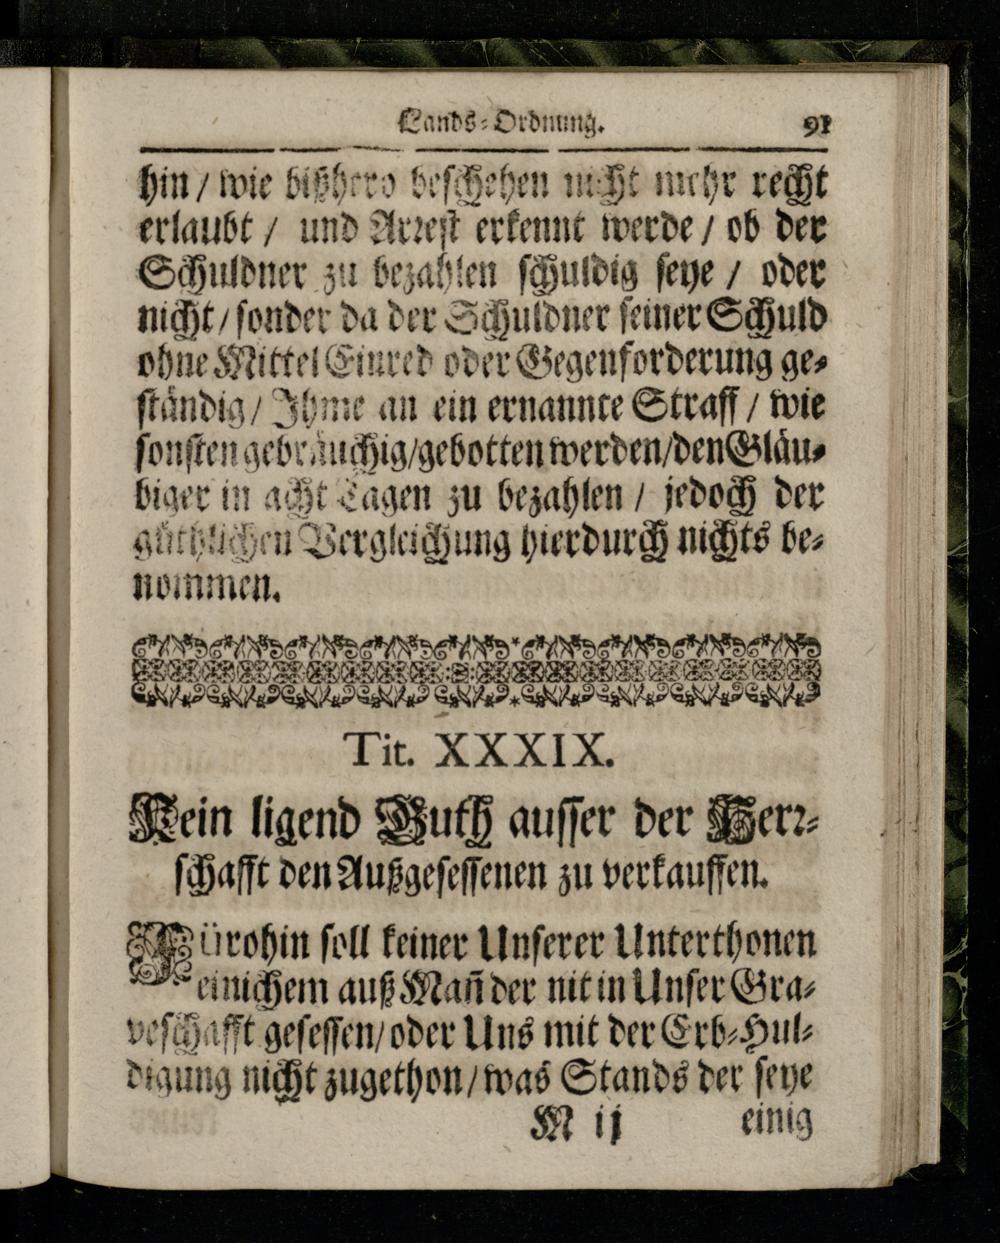 Lands-Ordnung. 91
hin / wie bißhero beschehen nicht mehr recht
erlaubt / und Arrest erkennt werde / ob der
Schuldner zu bezahlen schuldig seye / oder
nicht / sonder da der Schuldner seiner Schuld
ohne Mittel Einred oder Gegenforderung ge-
ständig / Ihme an ein ernannte Straff / wie
sonsten gebräuchig/gebotten werden/den Gläu-
biger in acht Tagen zu bezahlen / jedoch der
güthlichen Vergleichung hierdurch nichts be-
nommen.
Tit. XXXIX.
Kein ligend Guth ausser der Herr-
schafft den Außgesessenen zu verkauffen.
Fürohin soll keiner Unserer Unterthonen
einichem auß Mañ der nit in Unser Gra-
veschafft gesessen/oder Uns mit der Erb-Hul-
digung nicht zugethon/was Stands der seye
M ij einig